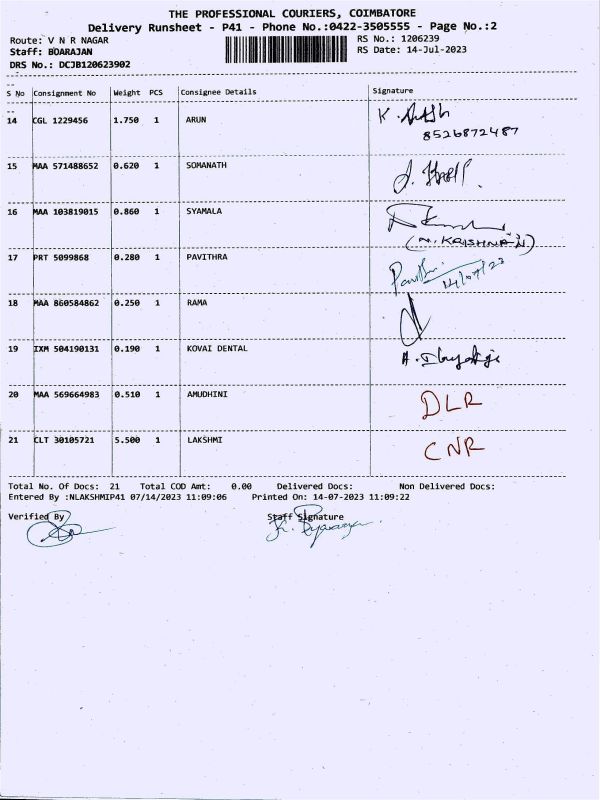 THE PROFESSIONAL COURIERS, COIMBATORE
Delivery Runsheet - P41 - Phone No.:0422-3505555 - Page No.:2
Route: V N R NAGAR RS No.: 1206239
Staff: BOARAJAN RS Date: 14-Jul-2023
DRS No.: DCJB120623902
S No Consignment No Weight PCS Consignee Details Signature
14 CGL 1229456 1.750 1 ARUN
8526872487
15 MAA 571488652 0.620 1 SOMANATH
16 MAA 103819015 0.860 1 SYAMALA
(N. KRISHNA N.)
17 PRT 5099868 0.280 1 PAVITHRA
14/07/23
18 MAA 860584862 0.250 1 RAMA
19 IXM 504190131 0.190 1 KOVAI DENTAL
20 MAA 569664983 0.510 1 AMUDHINI DLR
21 CLT 30105721 5.500 1 LAKSHMI CNR
Total No. Of Docs: 21 Total COD Amt: 0.00 Delivered Docs: Non Delivered Docs:
Entered By :NLAKSHMIP41 07/14/2023 11:09:06 Printed On: 14-07-2023 11:09:22
Verified By Staff Signature